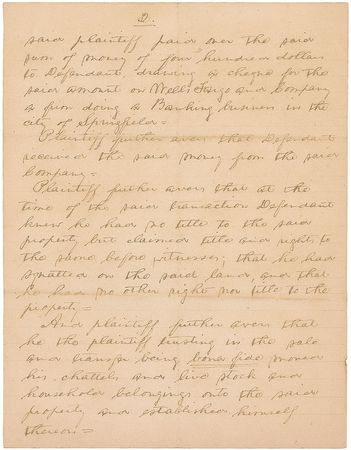 D.
said plaintiff paid over the said
sum of money of four hundred dollars
to Defendant, drawing a cheque for the
said amount on Wells Fargo and Company
a firm doing a Banking business in the
city of Springfield =
Plaintiff further avers that Defendant
received the said money from the said
Company =
Plaintiff further avers that at the
time of the said transaction Defendant
knew he had no title to the said
property but claimed title and rights to
the same before witnesses; that he had
squatted on the said land and that
he had no other right nor title to the
property =
And plaintiff further avers that
he the plaintiff trusting in the sale
and being bona fide moved
his chattels and live stock and
household belongings onto the said
property and established himself
thereon =